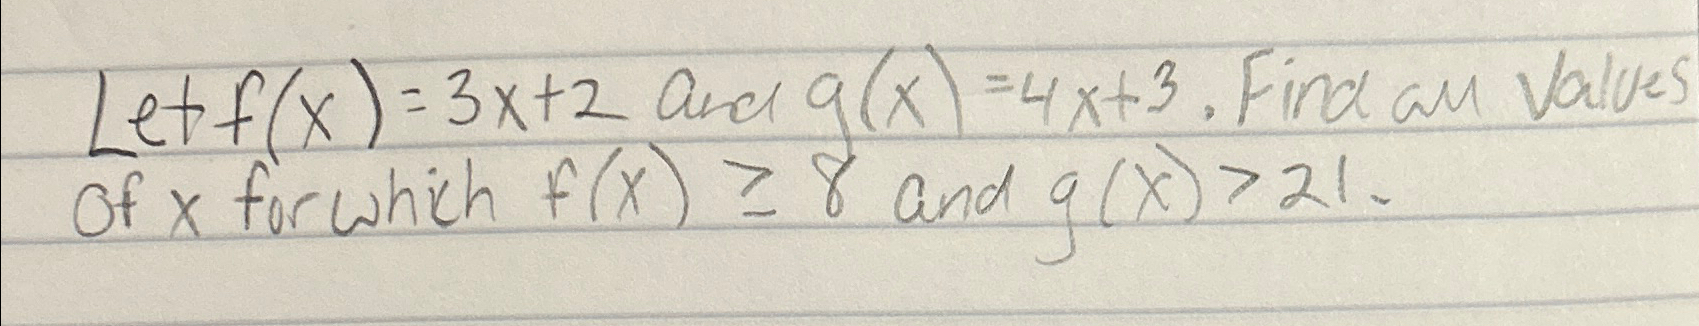 Let f(x) = 3x+2 and g(x) = 4x+3. Find all values
of x for which f(x) ≥ 8 and g(x) > 21.